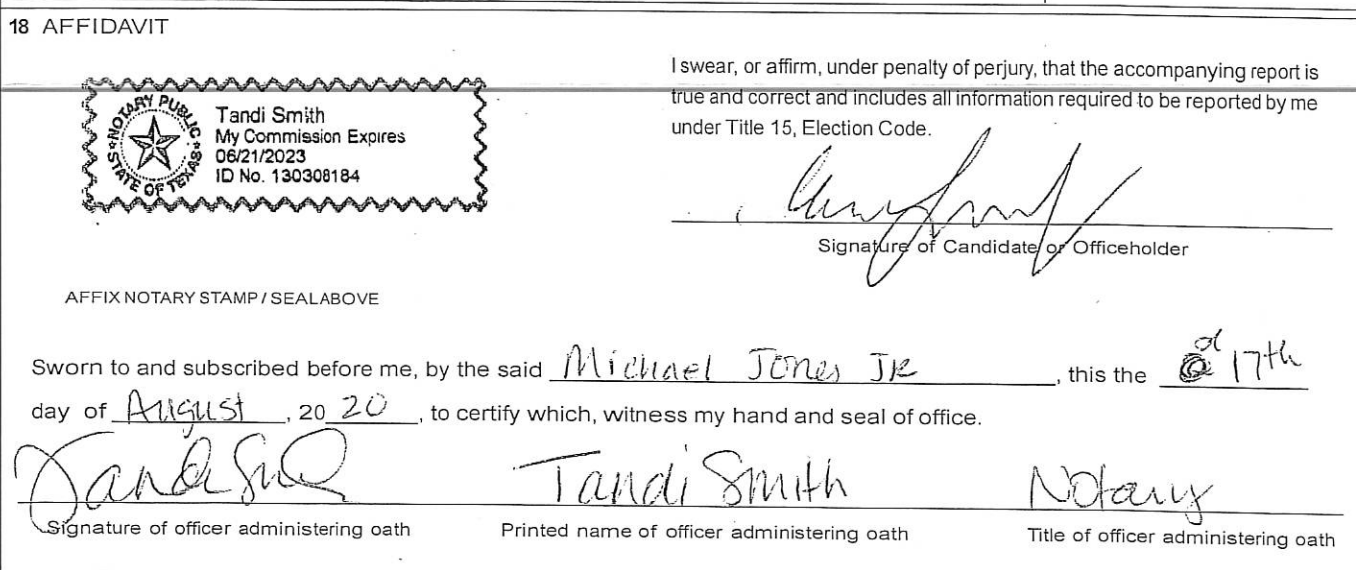 18 AFFIDAVIT
NOTARY PUBLIC
STATE OF TEXAS
Tandi Smith
My Commission Expires
06/21/2023
ID No. 130308184
I swear, or affirm, under penalty of perjury, that the accompanying report is
true and correct and includes all information required to be reported by me
under Title 15, Election Code.
Signature of Candidate or Officeholder
AFFIX NOTARY STAMP / SEALABOVE
Sworn to and subscribed before me, by the said Michael Jones JR, this the 17th
day of August, 20 20, to certify which, witness my hand and seal of office.
Tandi Smith Notary
Signature of officer administering oath Printed name of officer administering oath Title of officer administering oath